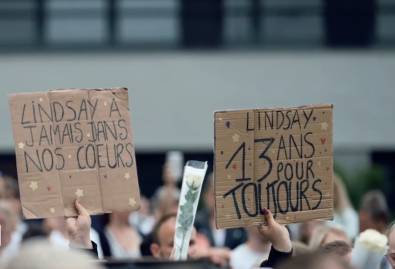 LINDSAY À
JAMAIS DANS
NOS COEURS
LINDSAY
13 ANS
POUR
TOUJOURS